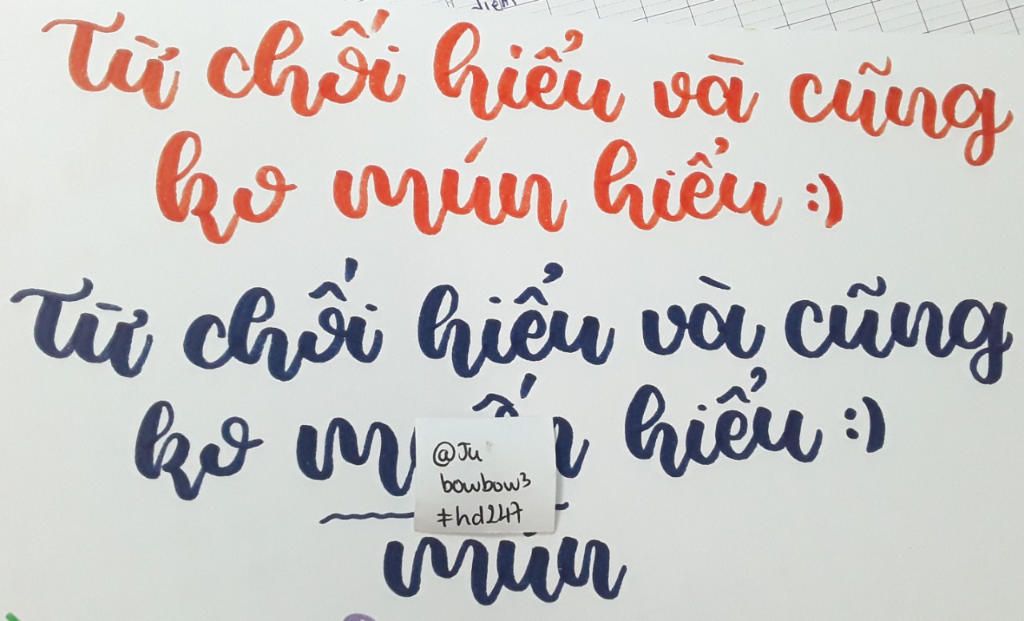 Từ chối hiểu và cũng
ko mún hiểu :)
Từ chối hiểu và cũng
ko hiểu :)
@Ju
bowbow3
#hd247
mún